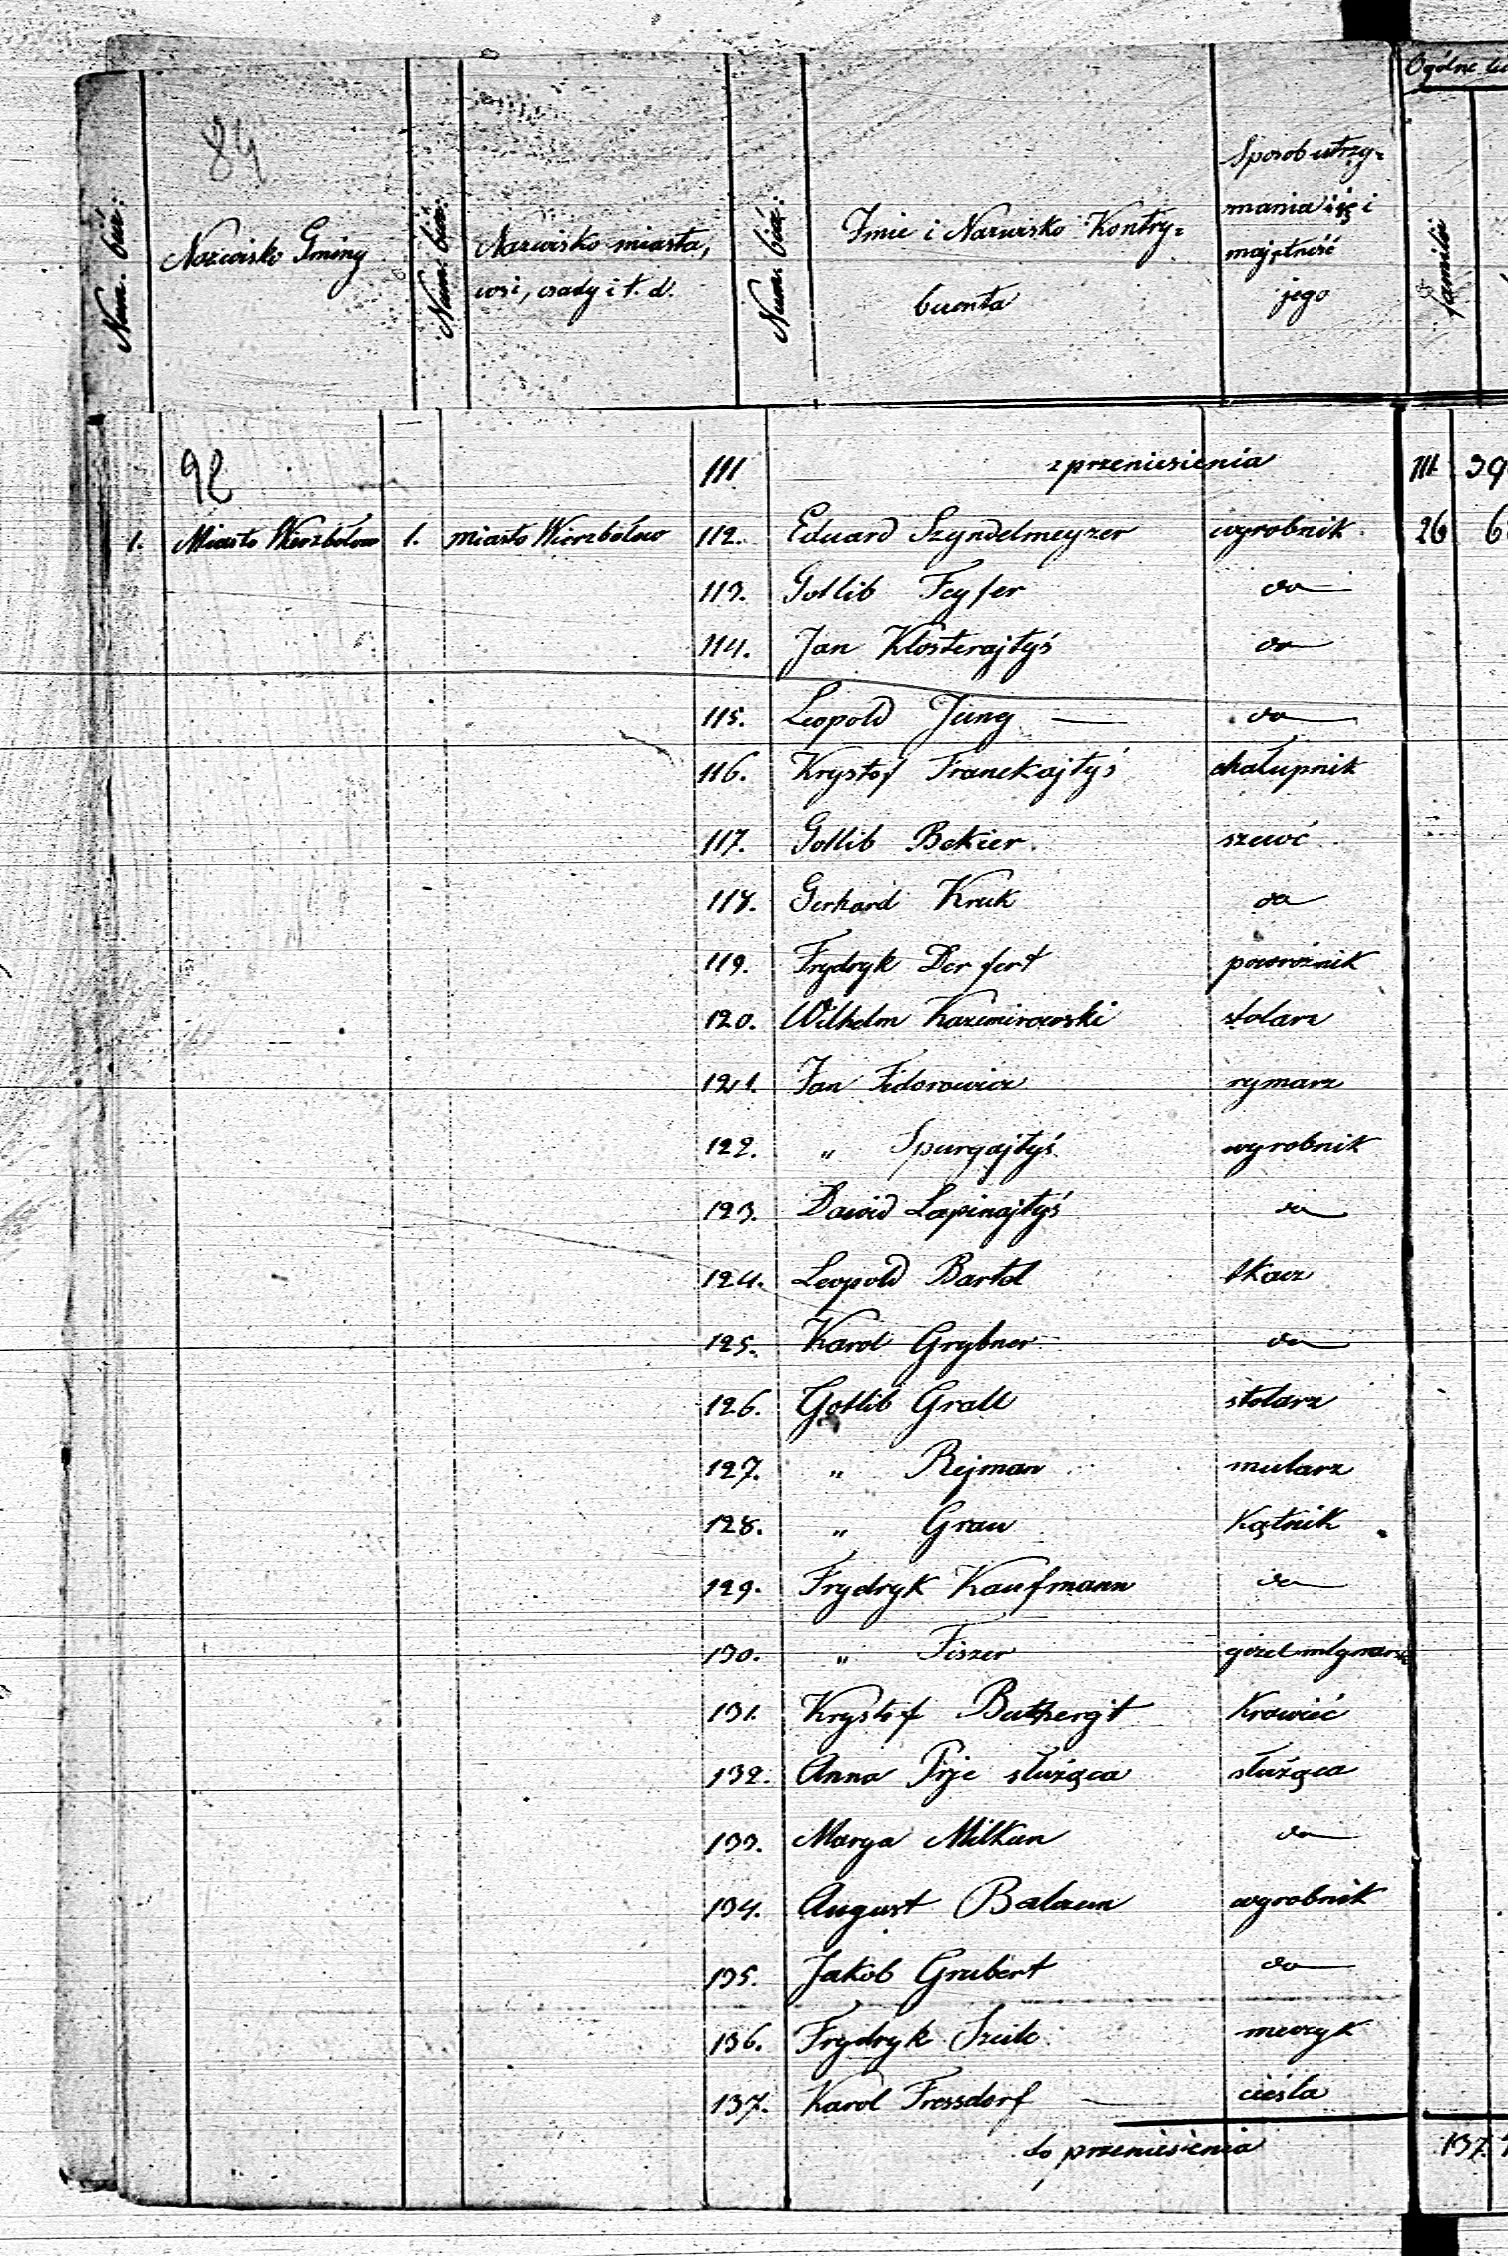 84
Num. bież:
Nazwisko Gminy
Num: bież:
Nazwisko miasta,
wsi, osady i t. d.
Num. bież:
Imie i Nazwisko Kontry=
buenta
Sposob utrzy=
mania się i
majętność
jego
Ogólne
familii
92
111 z przeniesienia 111 39
1. Miasto Wierzbołow 1. miasto Wierzbołow 112. Eduard Szyndelmeyzer wyrobnik 26 6
113. Gotlib Feyfer do
114. Jan Klosterajtyś do
115. Leopold Jung — do
116. Krystof Franckajtyś chałupnik
117. Gotlib Bekier szewć
118. Gerhard Kruk do
119. Frydryk Derfert powroźnik
120. Wilhelm Kazimirowski stolarz
121. Jan Fidorowicz rymarz
122. " Spurgajtyś wyrobnik
123. Dawid Lapinajtyś do
124. Leopold Bartel tkacz
125. Karol Grybner do
126. Gotlib Grall stolarz
127. " Rejman mularz
128. " Grau Kątnik
129. Frydryk Kaufmann do
130. " Fiszer
131. Krystof Butzergit Krawieć
132. Anna Pije służąca służąca
133. Marya Milkun do
134. August Balzun wyrobnik
135. Jakob Grubert do
136. Frydryk Szulc muzyk
137. Karol Fressdorf — cieśla
do przeniesienia 137.